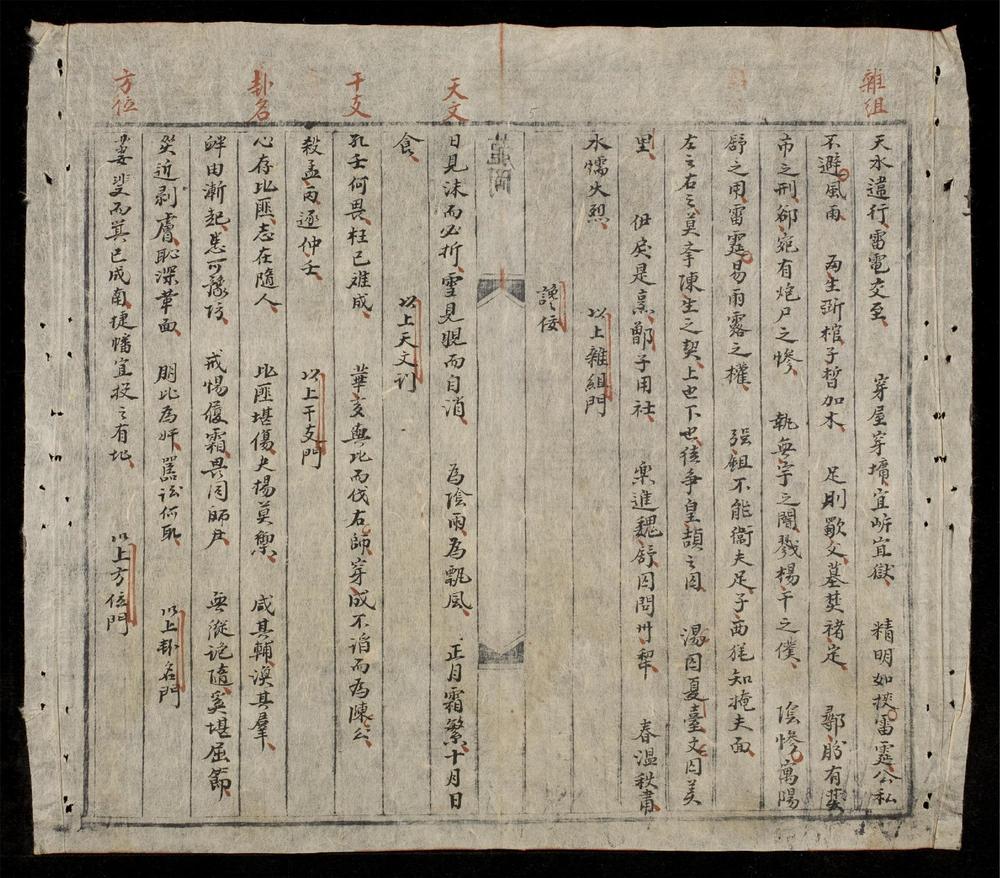 雜組
天水違行雷電交至　穿屋穿墉宜岸宜獄　精明如掞雷霆公私
不避風雨　両生斲棺子晳加木　足則歜父墓焚褚定　鄢肹有葵
市之刑郤宛有炮尸之慘　執無宇之閽戮楊干之僕　陰慘寓陽
舒之用雷霆易雨露之權　强鉏不能衞夫足子西猶知掩夫面
左之右之莫拏陳生之契上也下也徒爭皇頡之囚　湯囚夏臺文囚羑
里　伊戾是烹鄫子用社　樂進魏舒囚問卅犂　春温秋肅
水懦火烈　以上雜組門
讒佞
天文
日見沬而必折雪見晛而自消　為陰雨為飄風　正月霜繁十月日
食　以上天文刋
干支
孔壬何畏枉己难成　華亥與比而伐右師穿戍不谄而為陳公
殺孟丙逐仲壬　以上干支門
卦名
心存比匪志在隨人　比匪堪傷夬揚莫禦　咸其輔渙其羣
衅由漸起患可豫防　戒惕履霜畏同師尸　無縱詭隨奚堪屈節
災近剥膚恥深革面　朋比為奸嚚訟何耻　以上卦名門
方位
萋斐而箕已成南捷幡宜投之有北　以上方位門